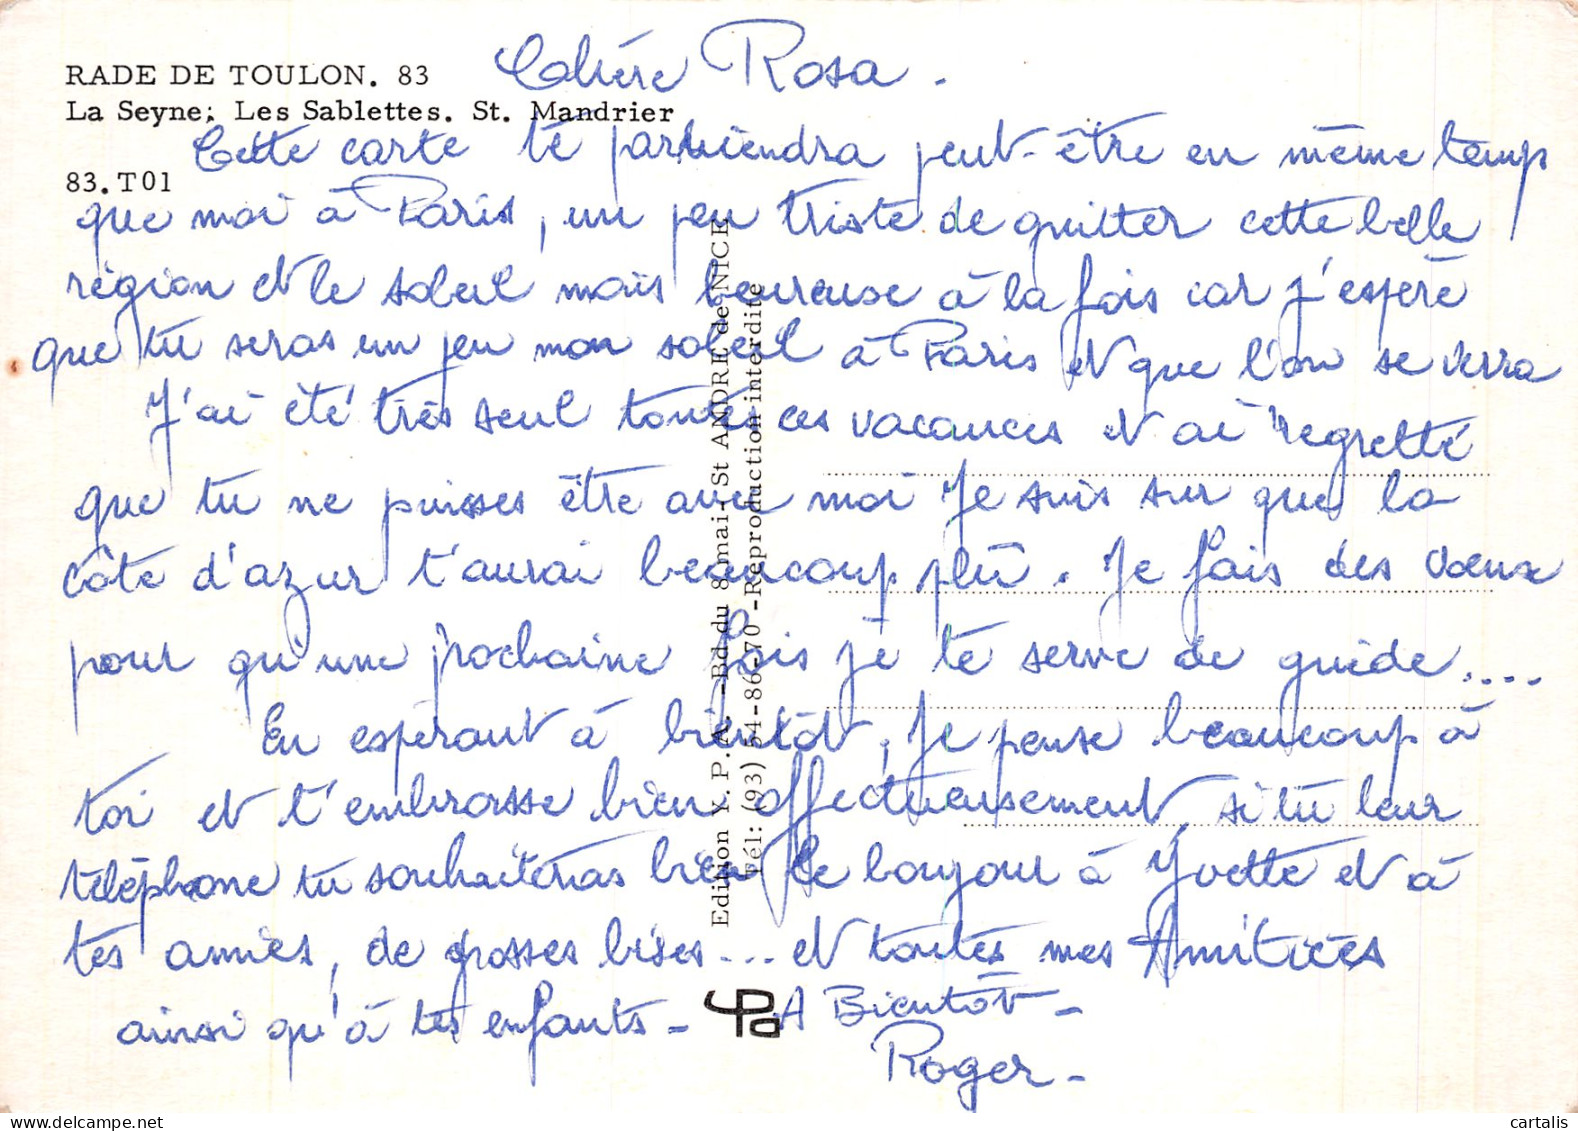 RADE DE TOULON. 83
La Seyne; Les Sablettes. St. Mandrier
83.T01
Chère Rosa.
Cette carte te parviendra peut-être en même temps
que moi à Paris, un peu triste de quitter cette belle
région et le soleil mais heureuse à la fois car j'espère
que tu seras un peu mon soleil à Paris et que l'on se verra
J'ai été très seul toutes ces vacances et ai regretté
que tu ne puisses être avec moi Je suis sur que la
côte d'azur t'aurai beaucoup plû. Je fais des voeux
pour qu'une prochaine fois je te serve de guide....
En espérant à bientôt, je pense beaucoup à
toi et t'embrasse bien affectueusement, si tu leur
téléphone tu souhaiteras bien le bonjour à Yvette et à
tes amies, de grosses bises... et toutes mes Amitiées
ainsi qu'à tes enfants - A Bientôt -
Roger -
Edition Y. P. A. -Bd du 8 mai- St ANDRE de NICE
Tél: (93) 54-86-70 -Reproduction interdite
YPa
cartalis